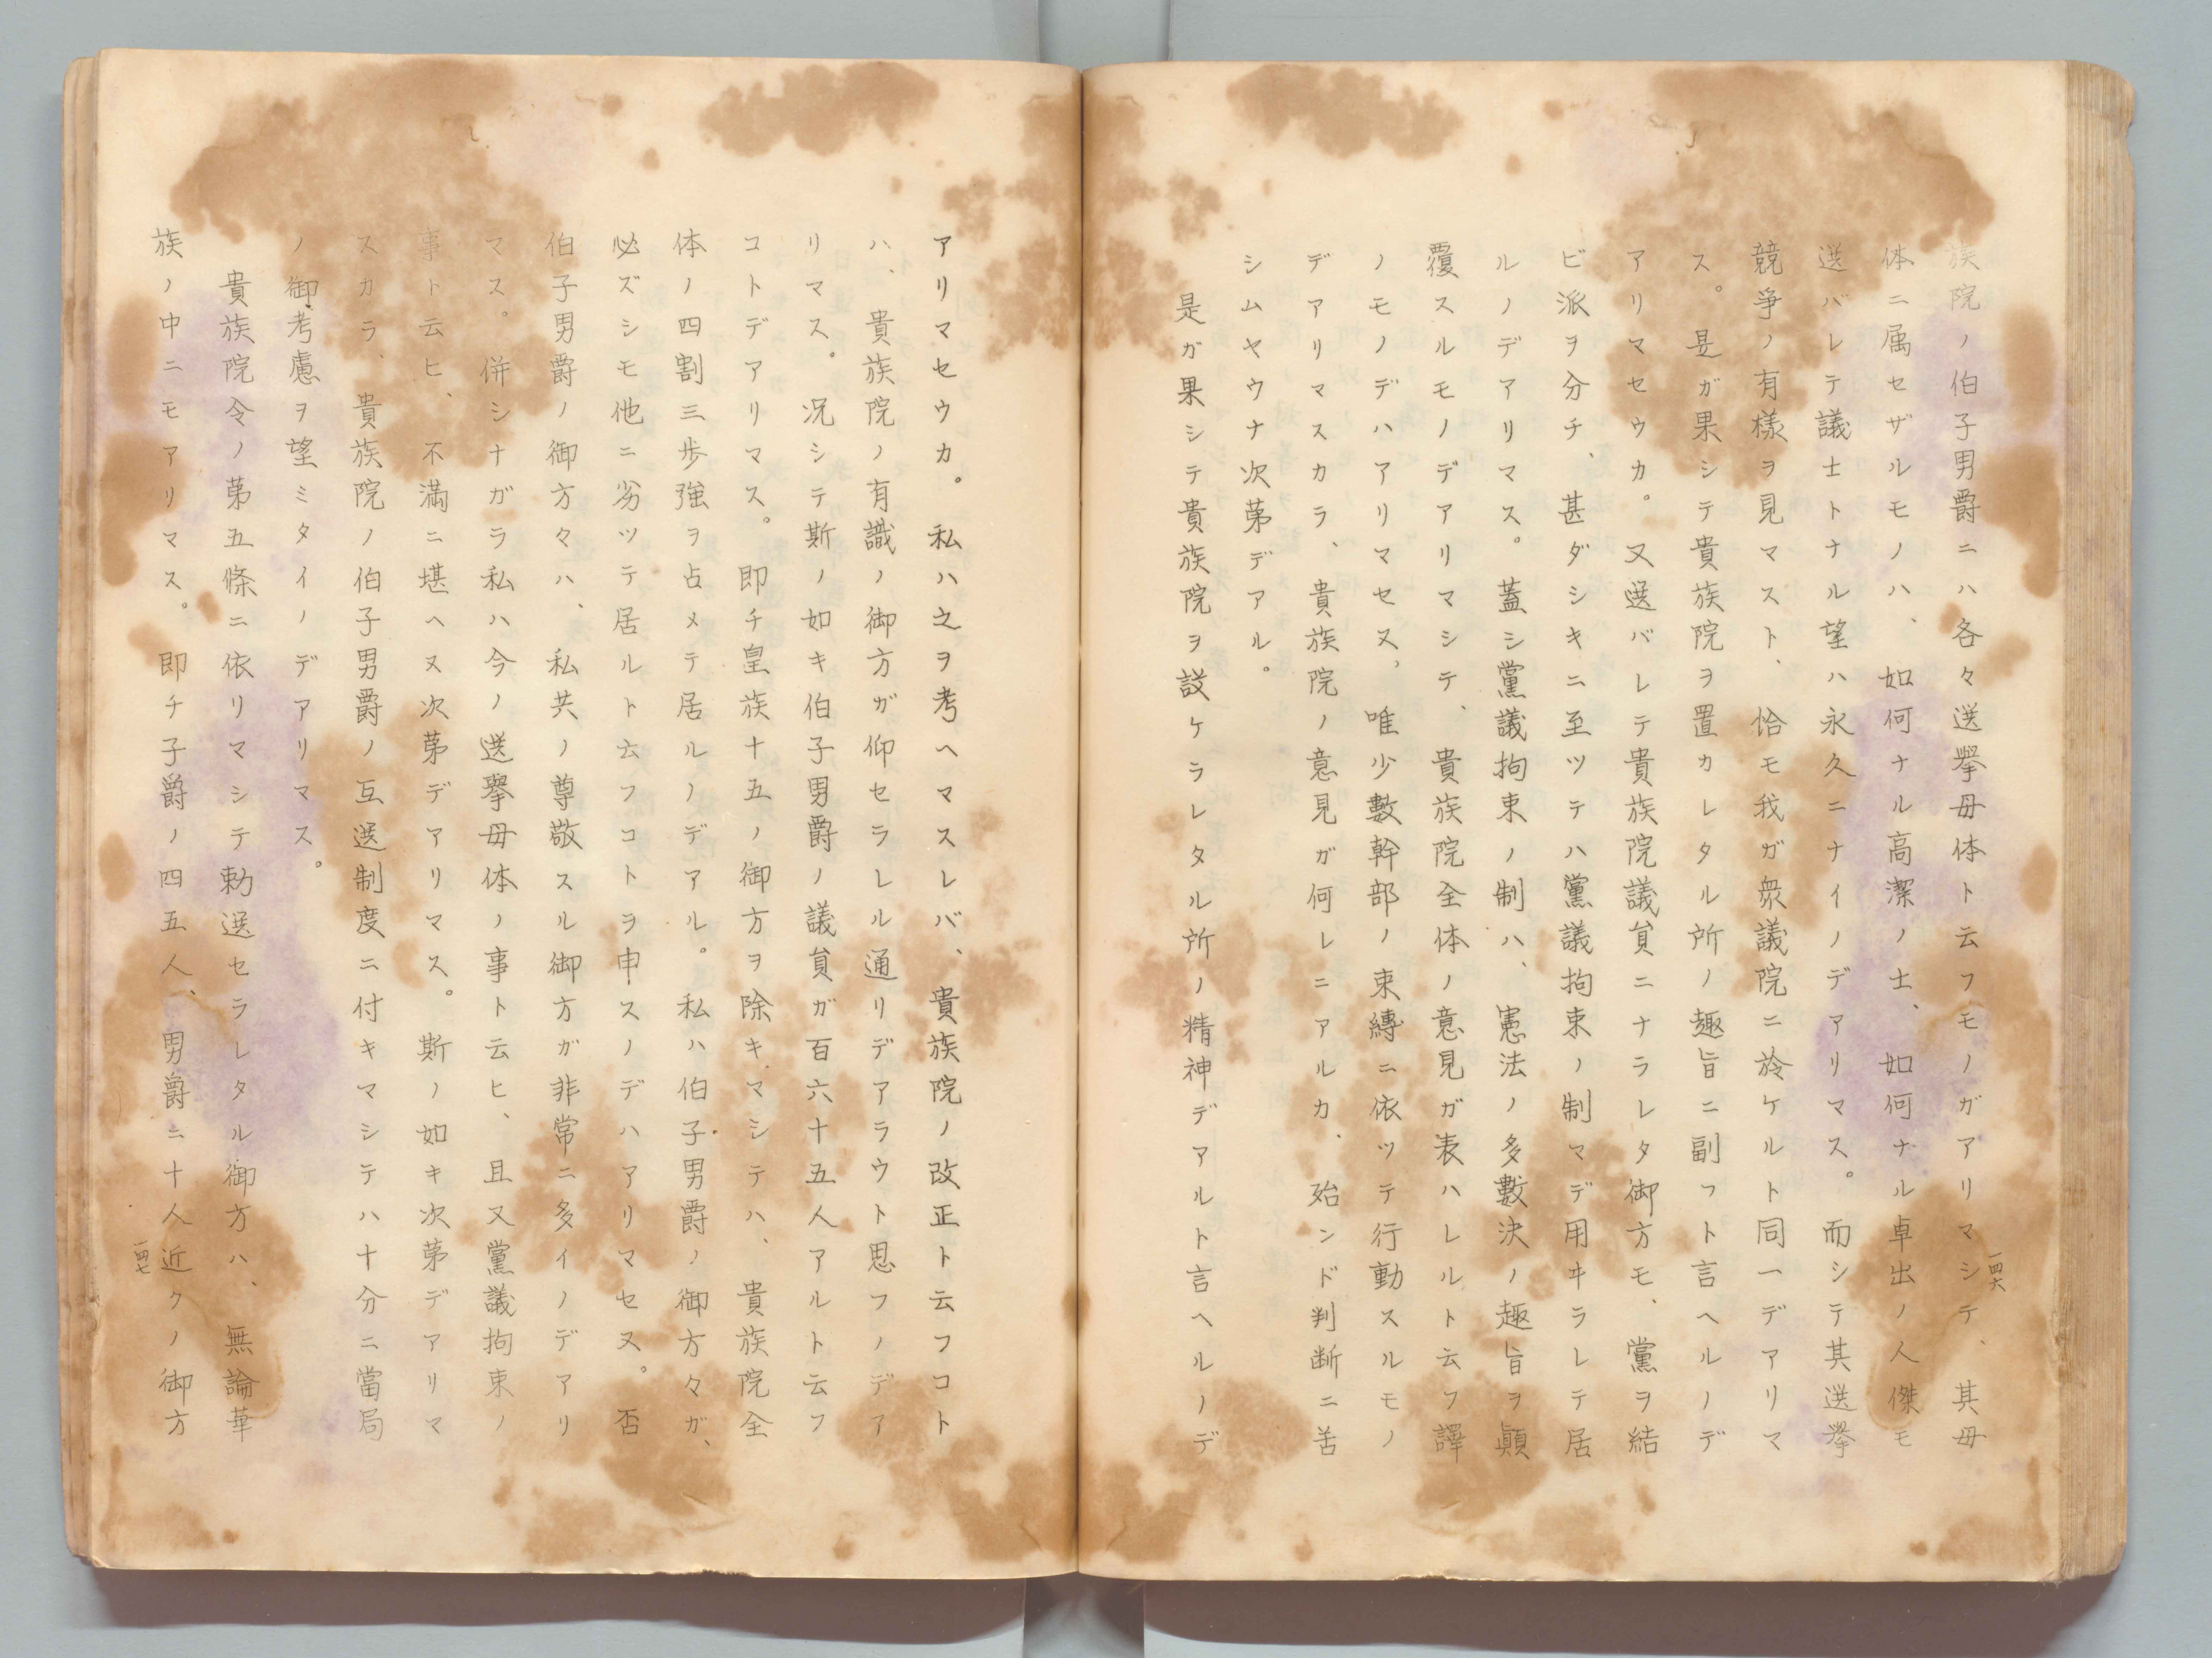 族院ノ伯子男爵ニハ各々選擧母体ト云フモノガアリマシテ、其母
体ニ属セザルモノハ、如何ナル高潔ノ士、如何ナル卓出ノ人傑モ
選バレテ議士トナル望ハ永久ニナイノデアリマス。而シテ其選擧
競爭ノ有樣ヲ見マスト、恰モ我ガ衆議院ニ於ケルト同一デアリマ
ス。是ガ果シテ貴族院ヲ置カレタル所ノ趣旨ニ副フト言ヘルノデ
アリマセウカ。又選バレテ貴族院議貟ニナラレタ御方モ、黨ヲ結
ビ派ヲ分チ、甚ダシキニ至ツテハ黨議拘束ノ制マデ用ヰラレテ居
ルノデアリマス。蓋シ黨議拘束ノ制ハ、憲法ノ多數決ノ趣旨ヲ顚
覆スルモノデアリマシテ、貴族院全体ノ意見ガ表ハレルト云フ譯
ノモノデハアリマセヌ、唯少數幹部ノ束縛ニ依ツテ行動スルモノ
デアリマスカラ、貴族院ノ意見ガ何レニアルカ、殆ンド判断ニ苦
シムヤウナ次第デアル。
是ガ果シテ貴族院ヲ設ケラレタル所ノ精神デアルト言ヘルノデ
一四六
アリマセウカ。私ハ之ヲ考ヘマスレバ、貴族院ノ改正ト云フコト
ハ、貴族院ノ有識ノ御方ガ仰セラレル通リデアラウト思フノデア
リマス。况シテ斯ノ如キ伯子男爵ノ議貟ガ百六十五人アルト云フ
コトデアリマス。即チ皇族十五ノ御方ヲ除キマシテハ、貴族院全
体ノ四割三歩強ヲ占メテ居ルノデアル。私ハ伯子男爵ノ御方々ガ、
必ズシモ他ニ劣ツテ居ルト云フコトヲ申スノデハアリマセヌ。否
伯子男爵ノ御方々ハ、私共ノ尊敬スル御方ガ非常ニ多イノデアリ
マス。併シナガラ私ハ今ノ選擧母体ノ事ト云ヒ、且又黨議拘束ノ
事ト云ヒ、不満ニ堪ヘヌ次第デアリマス。斯ノ如キ次第デアリマ
スカラ、貴族院ノ伯子男爵ノ互選制度ニ付キマシテハ十分ニ當局
ノ御考慮ヲ望ミタイノデアリマス。
貴族院令ノ第五條ニ依リマシテ勅選セラレタル御方ハ、無論華
族ノ中ニモアリマス。即チ子爵ノ四五人、男爵ニ十人近クノ御方
一四七